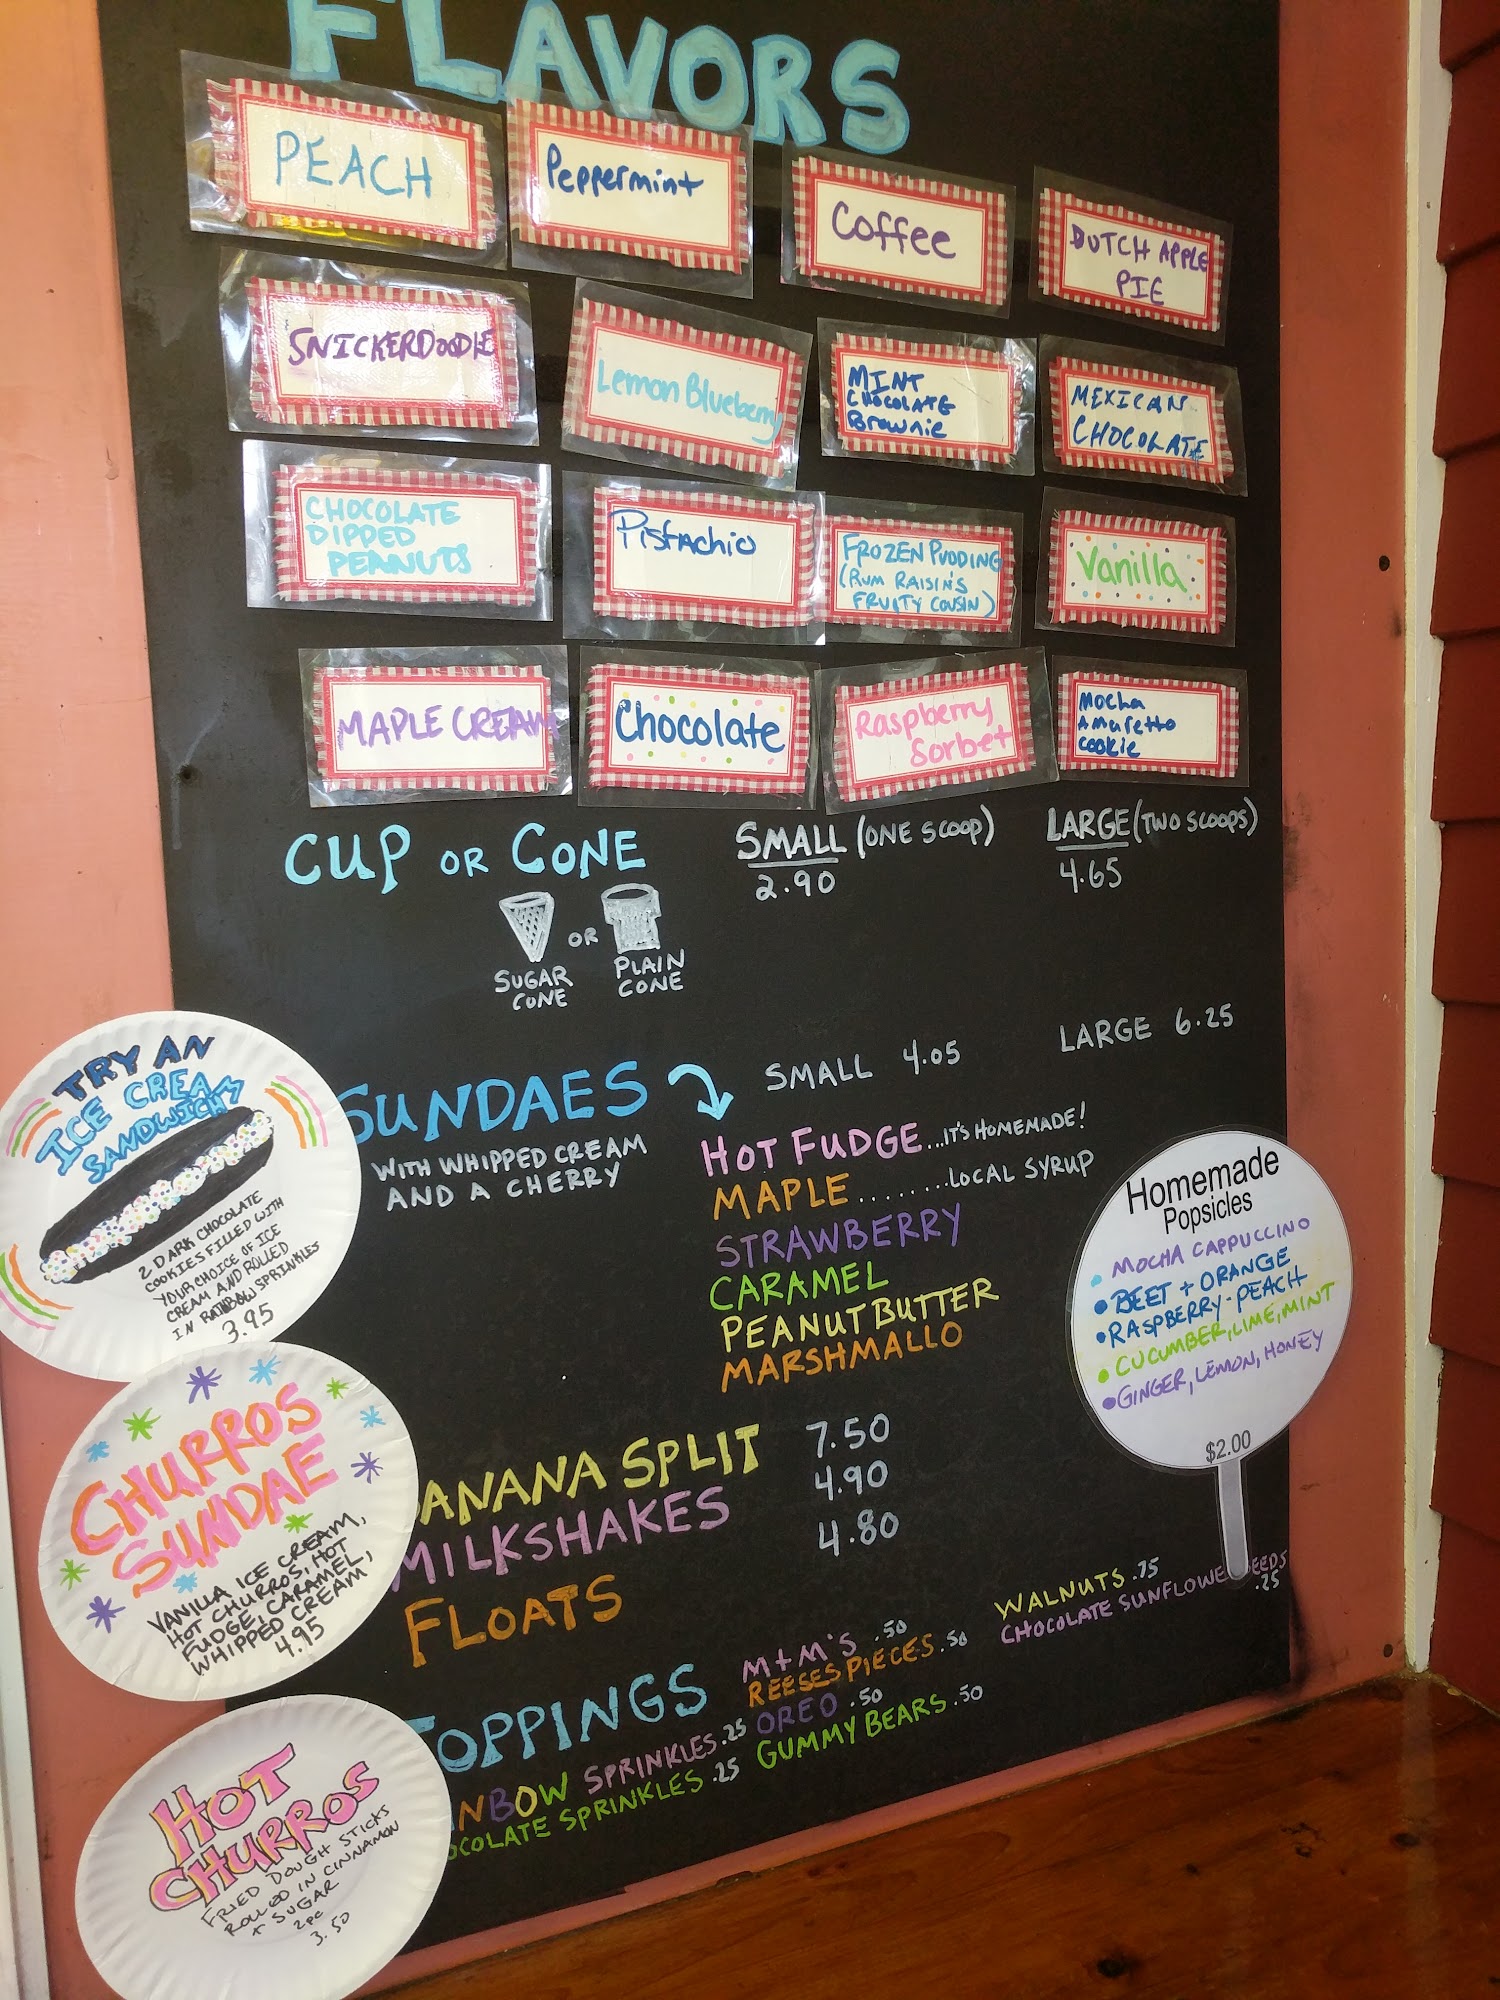 FLAVORS
PEACH
Peppermint
Coffee
DUTCH APPLE
PIE
SNICKERDOODLE
Lemon Blueberry
MINT
CHOCOLATE
Brownie
MEXICAN
CHOCOLATE
CHOCOLATE
DIPPED
PEANUTS
Pistachio
FROZEN PUDDING
(RUM RAISIN'S
FRUITY COUSIN)
Vanilla
MAPLE CREAM
Chocolate
Raspberry
Sorbet
Mocha
Amaretto
cookie
CUP OR CONE
SMALL (ONE SCOOP)
2.90
LARGE (TWO SCOOPS)
4.65
OR
SUGAR
CONE
PLAIN
CONE
SUNDAES
WITH WHIPPED CREAM
AND A CHERRY
SMALL 4.05
LARGE 6.25
HOT FUDGE...IT'S HOMEMADE!
MAPLE........LOCAL SYRUP
STRAWBERRY
CARAMEL
PEANUT BUTTER
MARSHMALLO
ANANA SPLIT 7.50
MILKSHAKES 4.90
FLOATS 4.80
TOPPINGS
INBOW SPRINKLES .25
OCOLATE SPRINKLES .25
M+M'S .50
REESES PIECES .50
OREO .50
GUMMY BEARS .50
WALNUTS .75
CHOCOLATE SUNFLOWER EEDS
.25
TRY AN
ICE CREAM
SANDWICH
2 DARK CHOCOLATE
COOKIES FILLED WITH
YOUR CHOICE OF ICE
CREAM AND ROLLED
IN RAINBOW SPRINKLES
3.95
CHURROS
SUNDAE
VANILLA ICE CREAM,
HOT CHURROS, HOT
FUDGE, CARAMEL,
WHIPPED CREAM
4.95
HOT
CHURROS
FRIED DOUGH STICKS
ROLLED IN CINNAMON
+ SUGAR
2pc
3.50
Homemade
Popsicles
• MOCHA CAPPUCCINO
• BEET + ORANGE
• RASPBERRY-PEACH
• CUCUMBER, LIME, MINT
• GINGER, LEMON, HONEY
$2.00